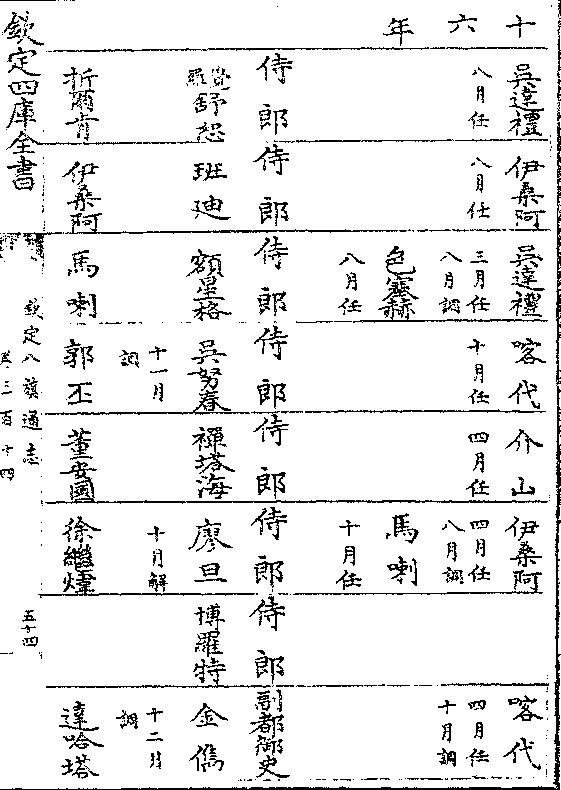 十六年
吳達禮
八月任
侍郎
覺羅舒恕
折爾肯
伊桑阿
八月任
侍郎
班迪
伊桑阿
吳達禮
三月任
八月調
色塞赫
八月任
侍郎
額星格
馬喇
喀代
十月任
侍郎
吳努春
十一月
調
郭丕
介山
四月任
侍郎
禪塔海
董安國
伊桑阿
四月任
八月調
馬喇
十月任
侍郎
廖旦
十月解
徐繼煒
侍郎
博羅特
喀代
四月任
十月調
副都御史
金儁
十二月
調
達哈塔
欽定四庫全書
欽定八旗通志
卷三百十四
五十四